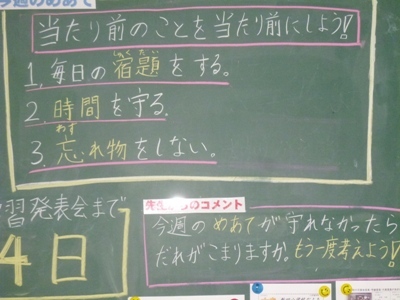 今週のめあて
当たり前のことを当たり前にしよう!
1. 毎日の宿題をする。
しゅくだい
2. 時間を守る。
3. 忘れ物をしない。
わす
習発表会まで
4日
先生からのコメント
今週のめあてが守れなかったら
だれがこまりますか。もう一度考えよう!